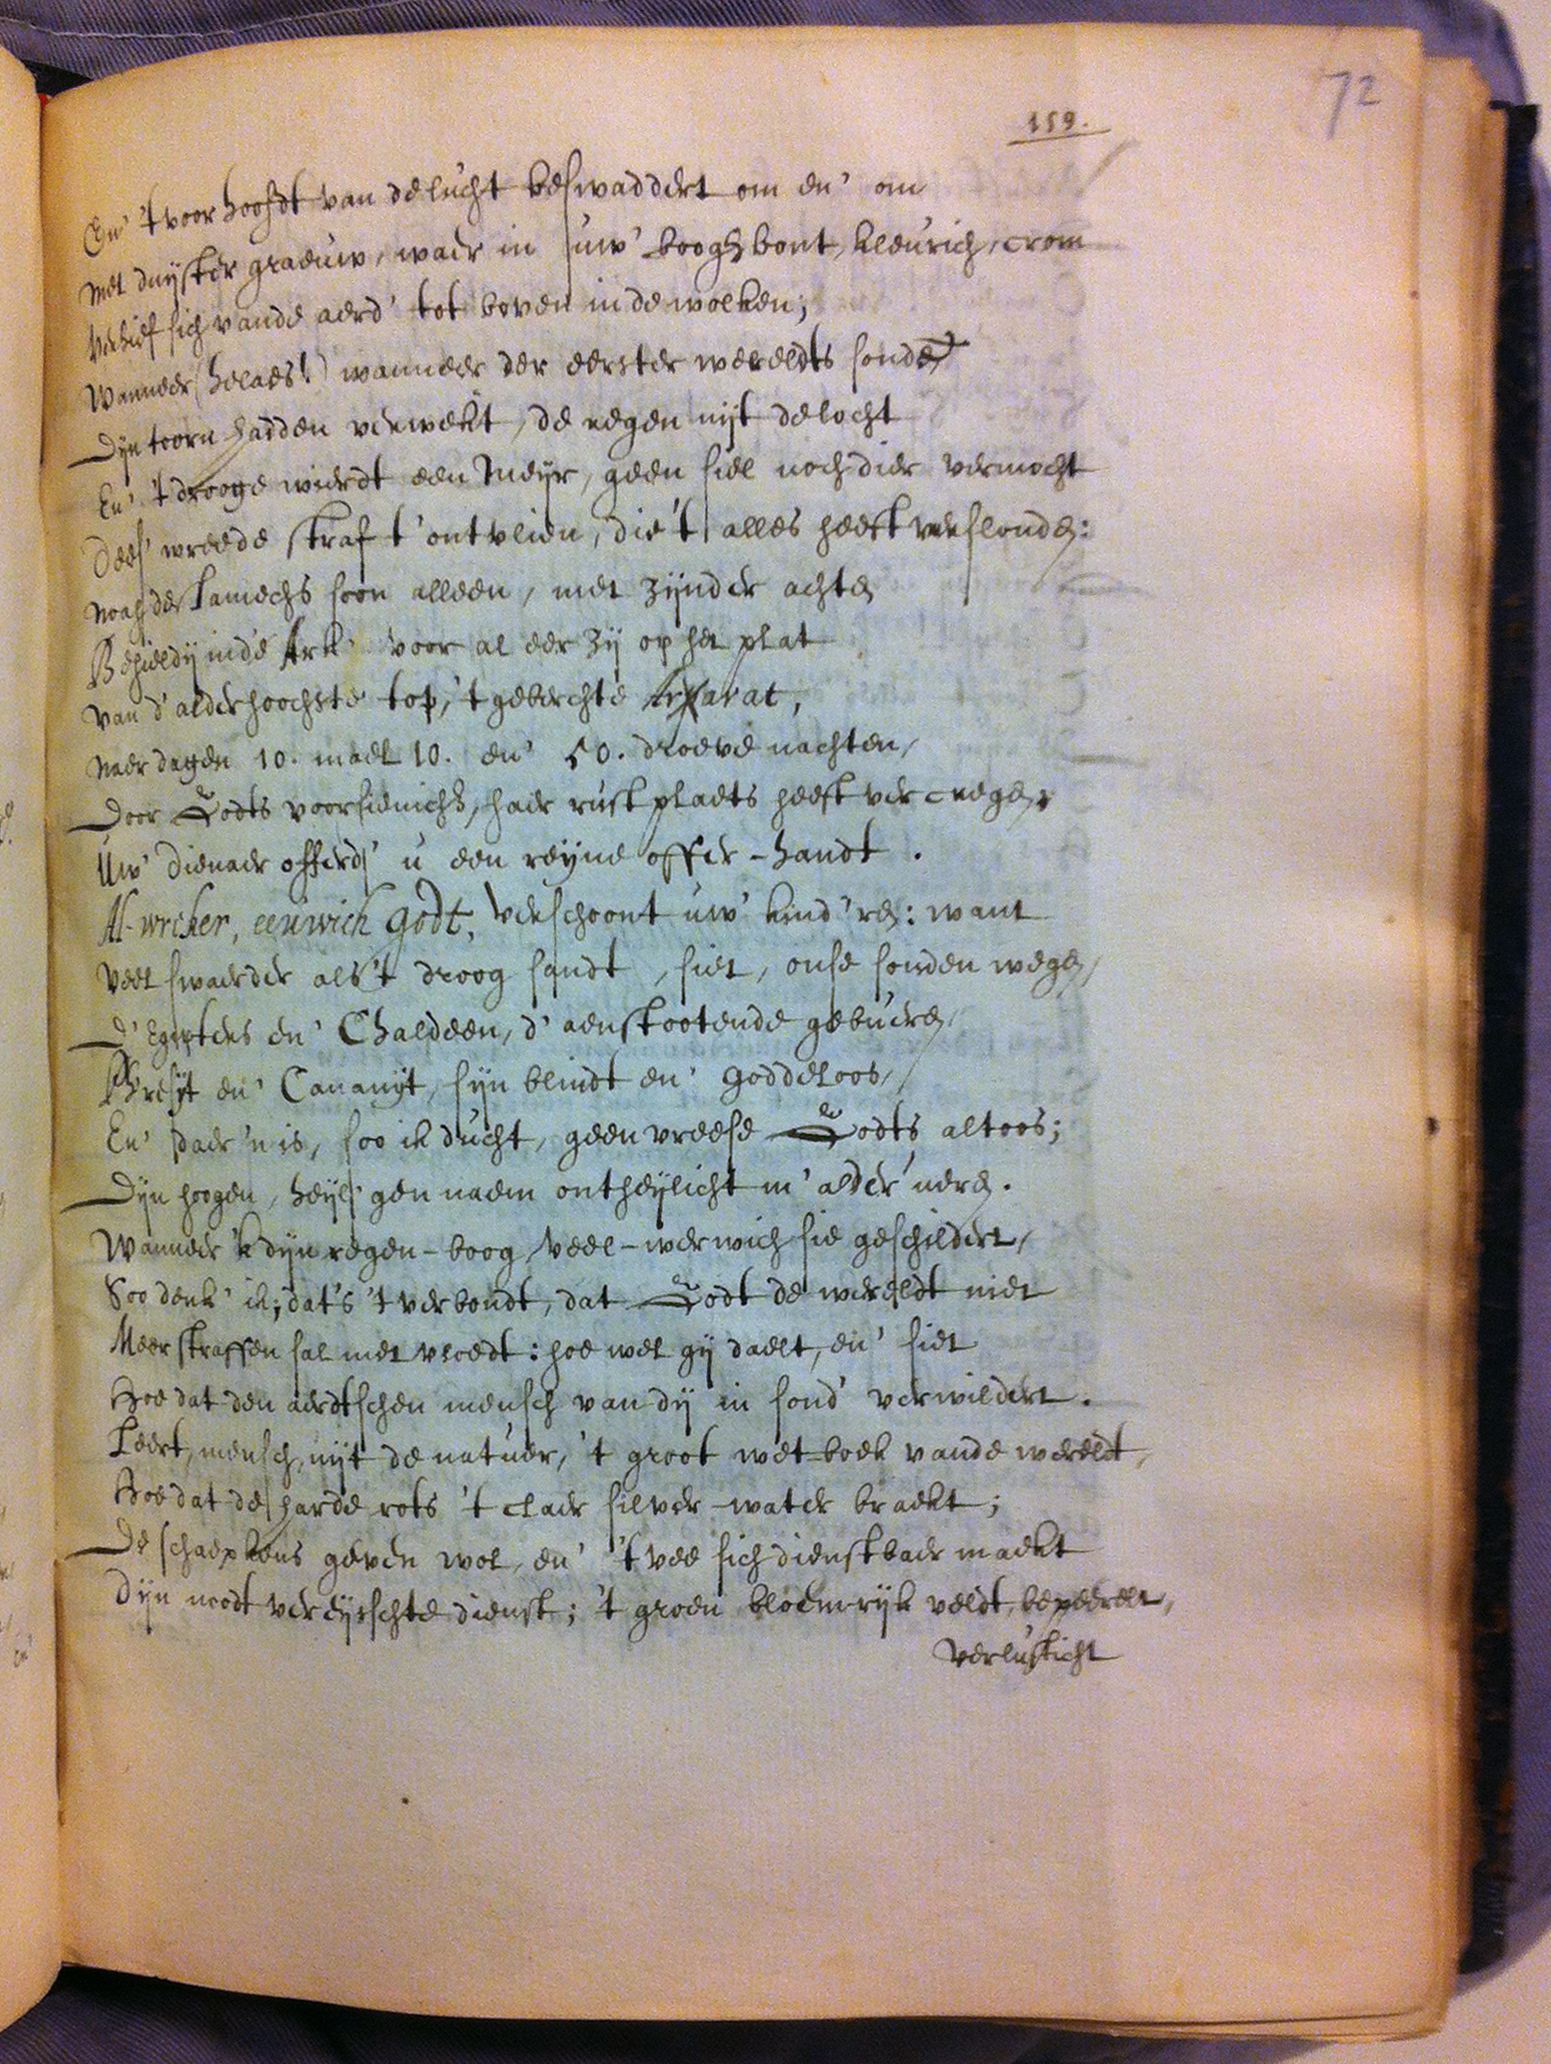 72
159.
En' 't voor hoofdt van de lucht beswaddert om en' om
Met duyster graeuw, waer in uw' boogh bont, kleurich, crom
Verhief sich vande aerd' tot boven in de wolken;
Wanneer (helaes!) wanneer der eerster wereldts sonden
Dyn toorn hadden verwekt, de regen uijt de locht
En' 't drooge wierdt een Meyr, geen siel noch dier vermocht
Dees' wreede straf t' ontvlien, die 't alles heeft verslonden:
Noah des Lamechs soon alleen, met zijnder achten
Behieldij in de Ark' voor al eer zij op het plat
Van d' alderhoochste top, 't geberchte Ararat,
Naer dagen 10. mael 10. en' 50. droeve nachten,
Door Godts voorsienich, haer rust plaets heeft vercregen,
Uw' dienaer offerd' u een reyne offer-handt.
Al-wreker, eeuwich Godt, verschoont uw' kind'ren: want
Veel swaerder als 't droog sandt, siet, onse sonden wegen,
D' Egipters en' Chaldeen, d' aenstootende gebueren,
Phresyt en' Cananyt, syn blindt en' goddeloos,
En' daer 'n is, soo ik ducht, geen vreese Godts altoos;
Dyn hoogen, heyl'gen naem ontheylicht m' alder uren.
Wanneer 'k dyn regen-boog, veel-werwich sie geschildert,
Soo denk' ik; dat's 't verbondt, dat Godt de wereldt niet
Meer straffen sal met vloedt: hoe wel gij daelt, en' siet
Hoe dat den aerdtschen mensch van dij in sond' verwildert.
Leert, mensch, uijt de natuer, 't groot wet-boek vande wereldt,
Hoe dat de harde rots 't claer silver-water braekt;
De schaepkens geven wol, en' 't vee sich dienstbaer maekt
Dyn noodt vereyschte dienst; 't groen bloemryk veldt, bepeerelt,
Verlusticht